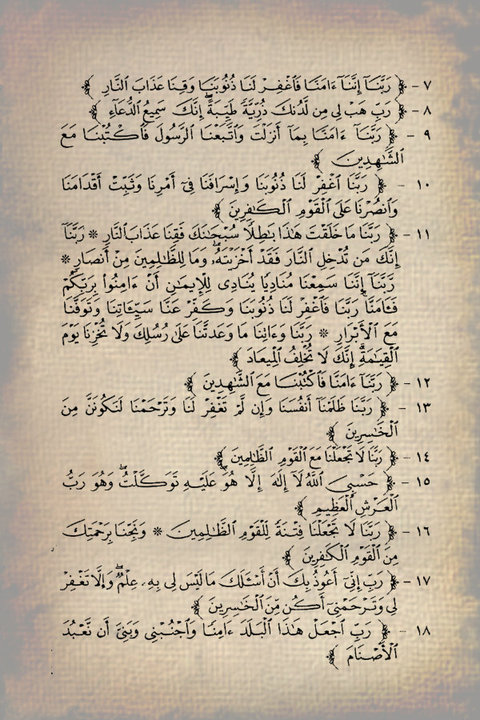 ٧ - ﴿ رَبَّنَآ إِنَّنَآ ءَامَنَّا فَٱغْفِرْ لَنَا ذُنُوبَنَا وَقِنَا عَذَابَ ٱلنَّارِ ﴾
٨ - ﴿ رَبِّ هَبْ لِى مِن لَّدُنكَ ذُرِّيَّةً طَيِّبَةً إِنَّكَ سَمِيعُ ٱلدُّعَآءِ ﴾
٩ - ﴿ رَبَّنَآ ءَامَنَّا بِمَآ أَنزَلْتَ وَٱتَّبَعْنَا ٱلرَّسُولَ فَٱكْتُبْنَا مَعَ
ٱلشَّٰهِدِينَ ﴾
١٠ - ﴿ رَبَّنَا ٱغْفِرْ لَنَا ذُنُوبَنَا وَإِسْرَافَنَا فِىٓ أَمْرِنَا وَثَبِّتْ أَقْدَامَنَا
وَٱنصُرْنَا عَلَى ٱلْقَوْمِ ٱلْكَٰفِرِينَ ﴾
١١ - ﴿ رَبَّنَا مَا خَلَقْتَ هَٰذَا بَٰطِلًا سُبْحَٰنَكَ فَقِنَا عَذَابَ ٱلنَّارِ * رَبَّنَآ
إِنَّكَ مَن تُدْخِلِ ٱلنَّارَ فَقَدْ أَخْزَيْتَهُۥ وَمَا لِلظَّٰلِمِينَ مِنْ أَنصَارٍ *
رَّبَّنَآ إِنَّنَا سَمِعْنَا مُنَادِيًا يُنَادِى لِلْإِيمَٰنِ أَنْ ءَامِنُوا۟ بِرَبِّكُمْ
فَـَٔامَنَّا رَبَّنَا فَٱغْفِرْ لَنَا ذُنُوبَنَا وَكَفِّرْ عَنَّا سَيِّـَٔاتِنَا وَتَوَفَّنَا
مَعَ ٱلْأَبْرَارِ * رَبَّنَا وَءَاتِنَا مَا وَعَدتَّنَا عَلَىٰ رُسُلِكَ وَلَا تُخْزِنَا يَوْمَ
ٱلْقِيَٰمَةِ إِنَّكَ لَا تُخْلِفُ ٱلْمِيعَادَ ﴾
١٢ - ﴿ رَبَّنَآ ءَامَنَّا فَٱكْتُبْنَا مَعَ ٱلشَّٰهِدِينَ ﴾
١٣ - ﴿ رَبَّنَا ظَلَمْنَآ أَنفُسَنَا وَإِن لَّمْ تَغْفِرْ لَنَا وَتَرْحَمْنَا لَنَكُونَنَّ مِنَ
ٱلْخَٰسِرِينَ ﴾
١٤ - ﴿ رَبَّنَا لَا تَجْعَلْنَا مَعَ ٱلْقَوْمِ ٱلظَّٰلِمِينَ ﴾
١٥ - ﴿ حَسْبِىَ ٱللَّهُ لَآ إِلَٰهَ إِلَّا هُوَ عَلَيْهِ تَوَكَّلْتُ وَهُوَ رَبُّ
ٱلْعَرْشِ ٱلْعَظِيمِ ﴾
١٦ - ﴿ رَبَّنَا لَا تَجْعَلْنَا فِتْنَةً لِّلْقَوْمِ ٱلظَّٰلِمِينَ * وَنَجِّنَا بِرَحْمَتِكَ
مِنَ ٱلْقَوْمِ ٱلْكَٰفِرِينَ ﴾
١٧ - ﴿ رَبِّ إِنِّىٓ أَعُوذُ بِكَ أَنْ أَسْـَٔلَكَ مَا لَيْسَ لِى بِهِۦ عِلْمٌ وَإِلَّا تَغْفِرْ
لِى وَتَرْحَمْنِىٓ أَكُن مِّنَ ٱلْخَٰسِرِينَ ﴾
١٨ - ﴿ رَبِّ ٱجْعَلْ هَٰذَا ٱلْبَلَدَ ءَامِنًا وَٱجْنُبْنِى وَبَنِىَّ أَن نَّعْبُدَ
ٱلْأَصْنَامَ ﴾